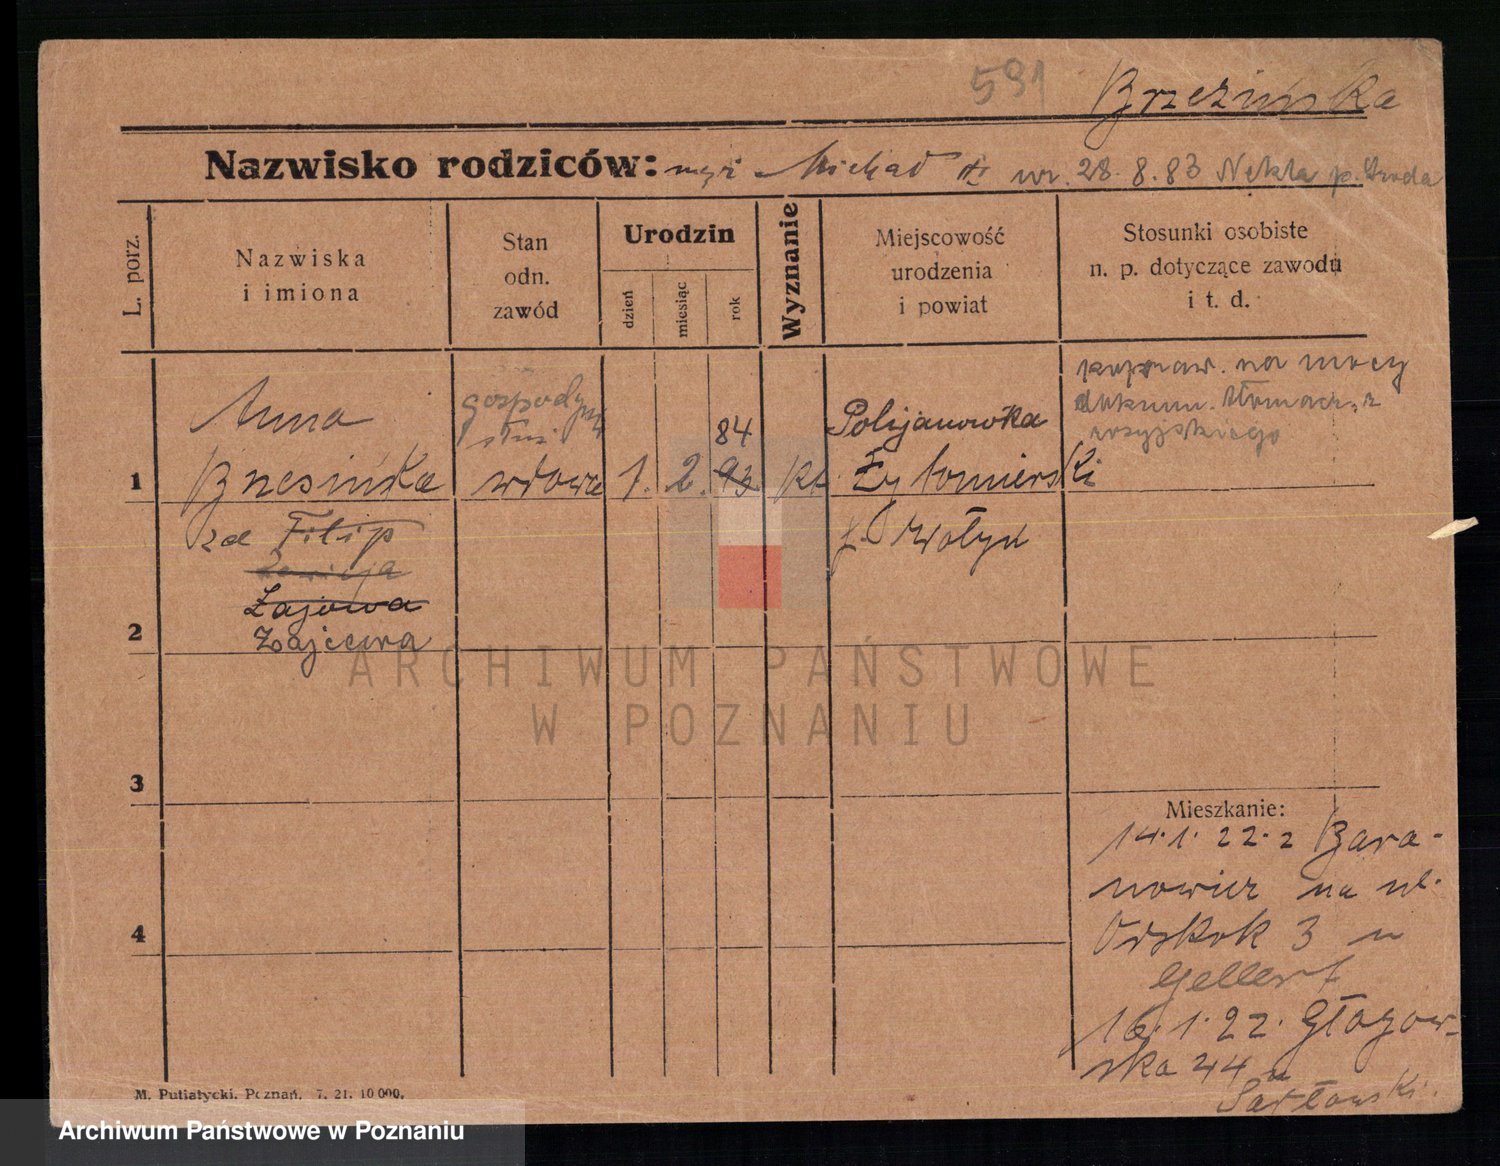 591
Brzezińska
Nazwisko rodziców: mąż Michał ur. 28.8.83 Nekla p. Środa
L. porz.
Nazwiska
i imiona
Stan
odn.
zawód
Urodzin
dzień
miesiąc
rok
Wyznanie
Miejscowość
urodzenia
i powiat
Stosunki osobiste
n. p. dotyczące zawodu
i t. d.
1
Anna
Brzesińska
gospodyni
wdowa
1.
2.
84
93
kt.
Polijanowka
Żytomierski
Wołyń
popraw. na mocy
dokum. tłomacz. z
rosyjskiego
zd Filip
Zajowa
Zajcewa
2
3
4
Mieszkanie:
14.1.22 z Bara-
nowicz na ul.
Odskok 3 u
Gellert
16.1.22. Głogow-
ska 44 u
M. Putiatycki, Poznań, 7. 21. 10 000.
ARCHIWUM PAŃSTWOWE
W POZNANIU
Archiwum Państwowe w Poznaniu